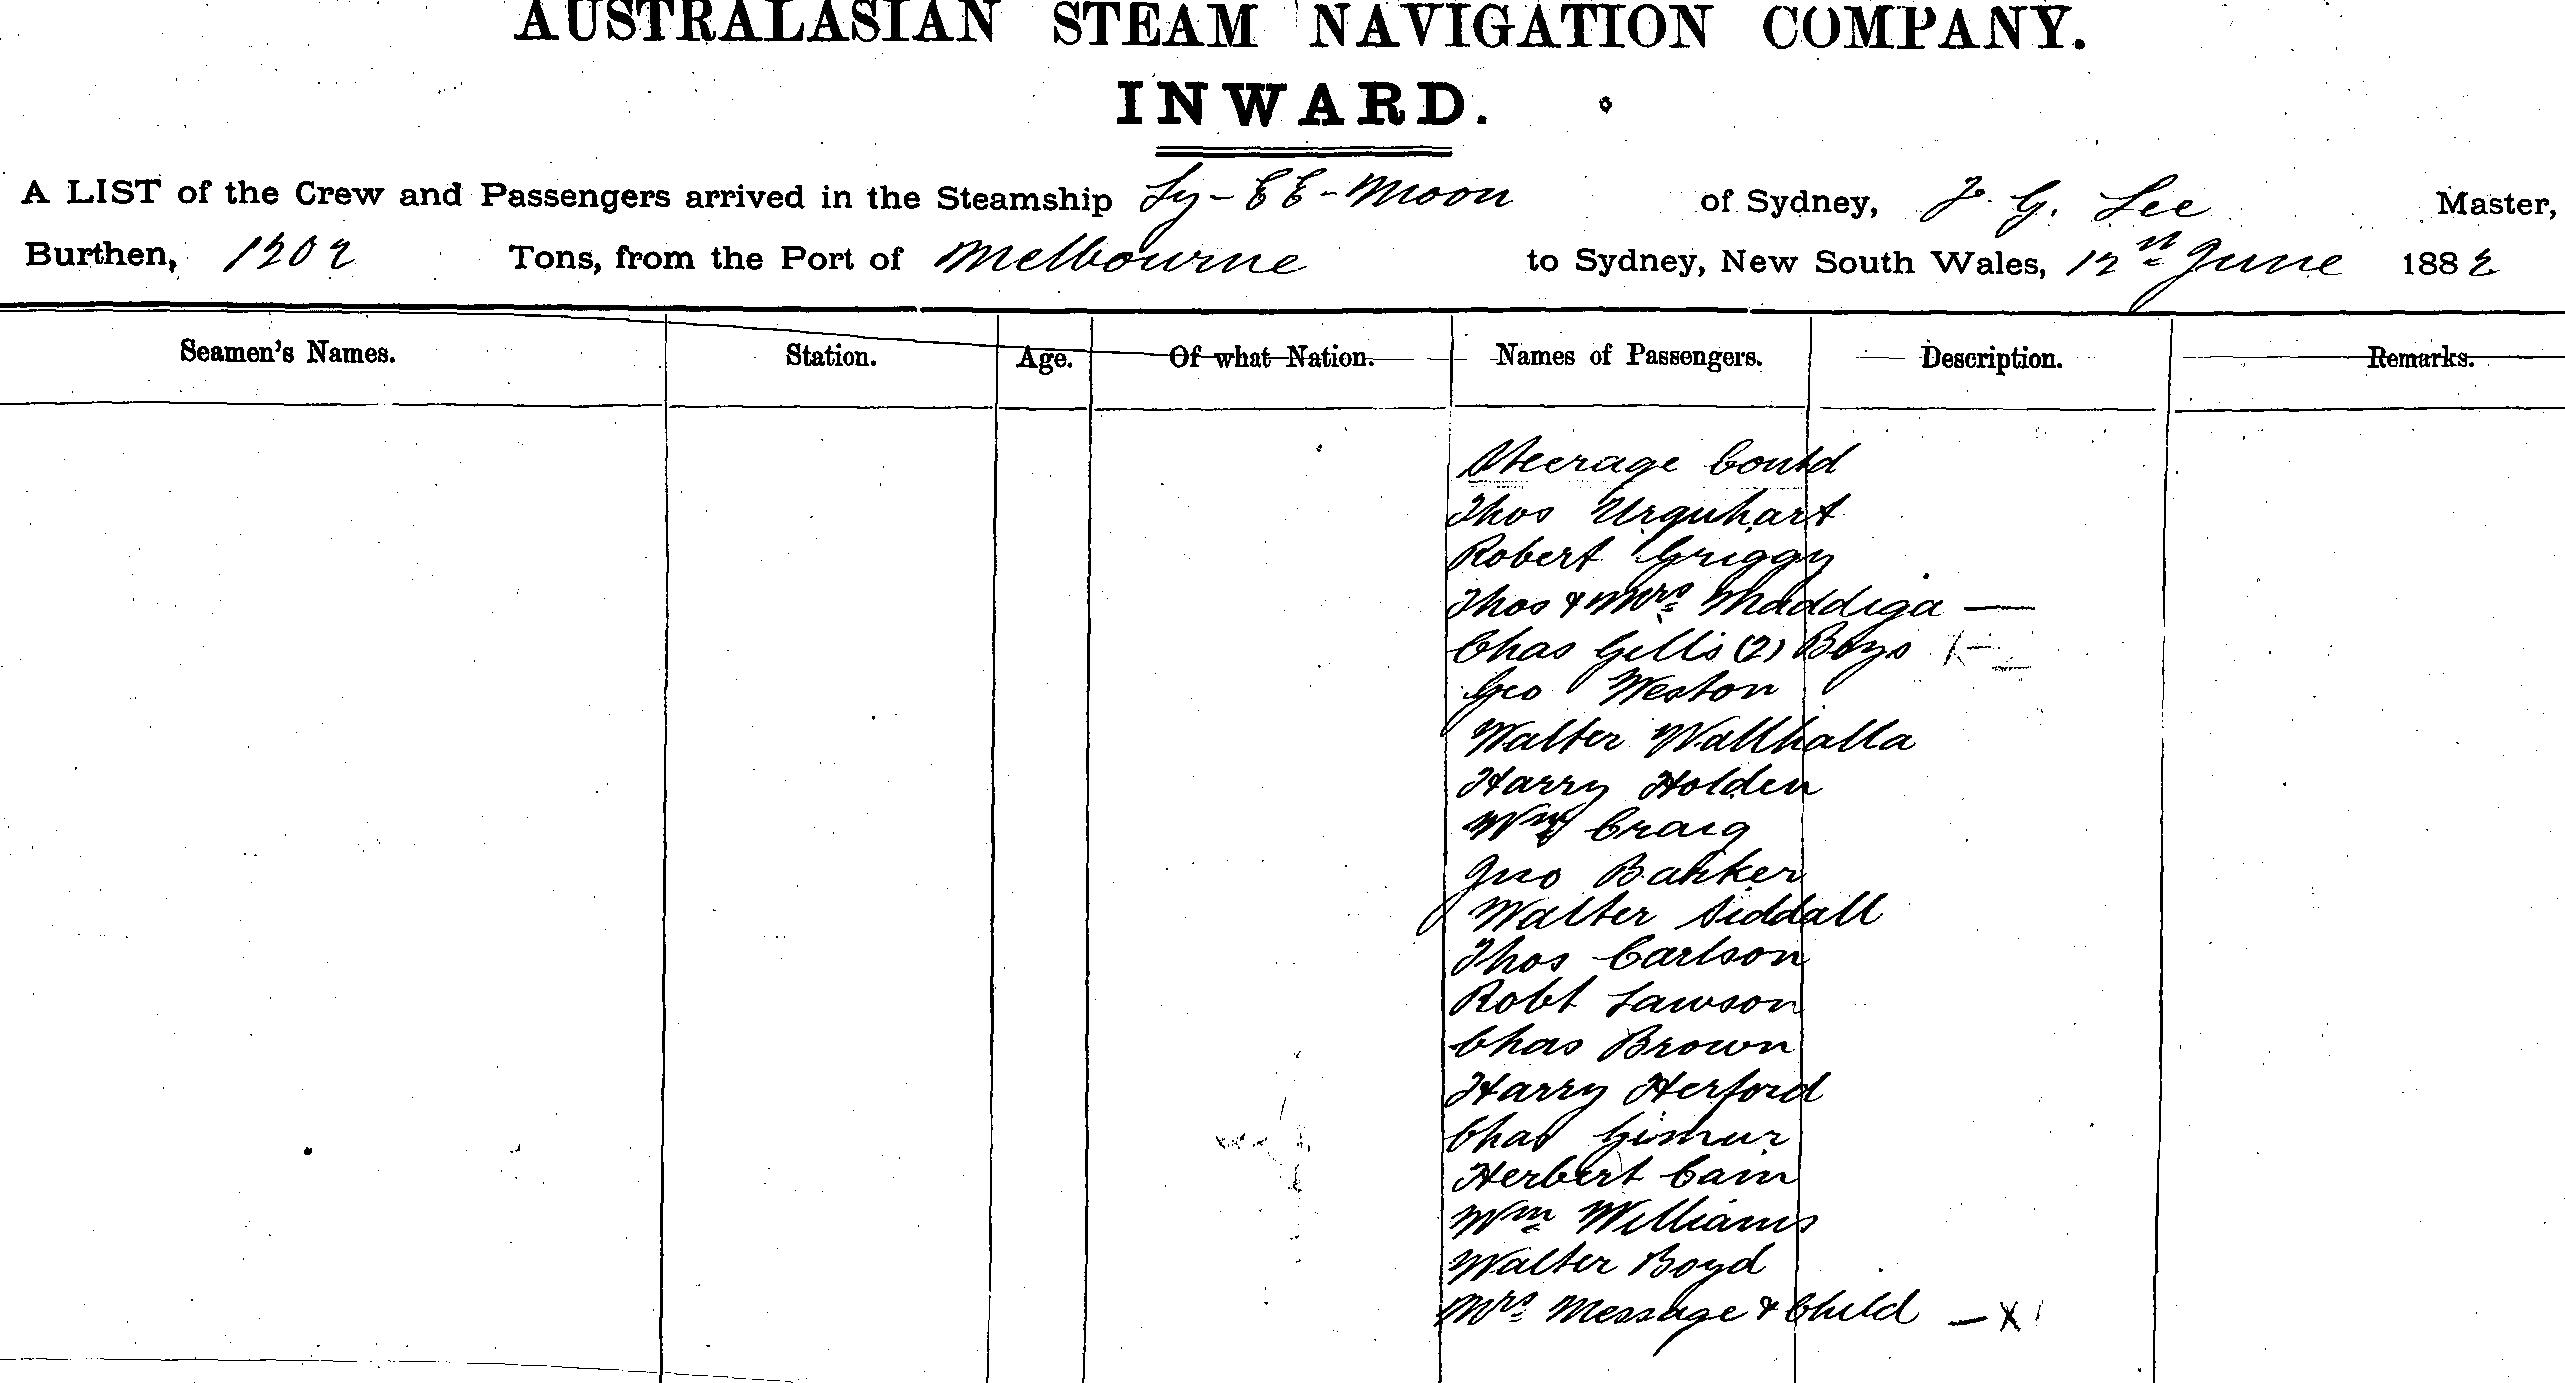 AUSTRALASIAN STEAM NAVIGATION COMPANY.
INWARD.
A LIST of the Crew and Passengers arrived in the Steamship Ly-EE-Moon of Sydney, J. G. Lee Master,
Burthen, 1202 Tons, from the Port of Melbourne to Sydney, New South Wales, 12th June 1882
Seamen's Names. Station. Age. Of what Nation. Names of Passengers. Description. Remarks.
Steerage Contd
Thos Urquhart
Robert Griggy
Thos & Mrs Maddiga —
Chas Gellis (2) Boys
Geo Weston
Walter Wallhalla
Harry Holden
Wm Craig
Jno Banker
Walter Siddall
Thos Carlson
Robt Lawson
Chas Brown
Harry Herford
Chas Gismur
Herbert Cain
Wm Williams
Walter Boyd
Mrs Message & Child — X